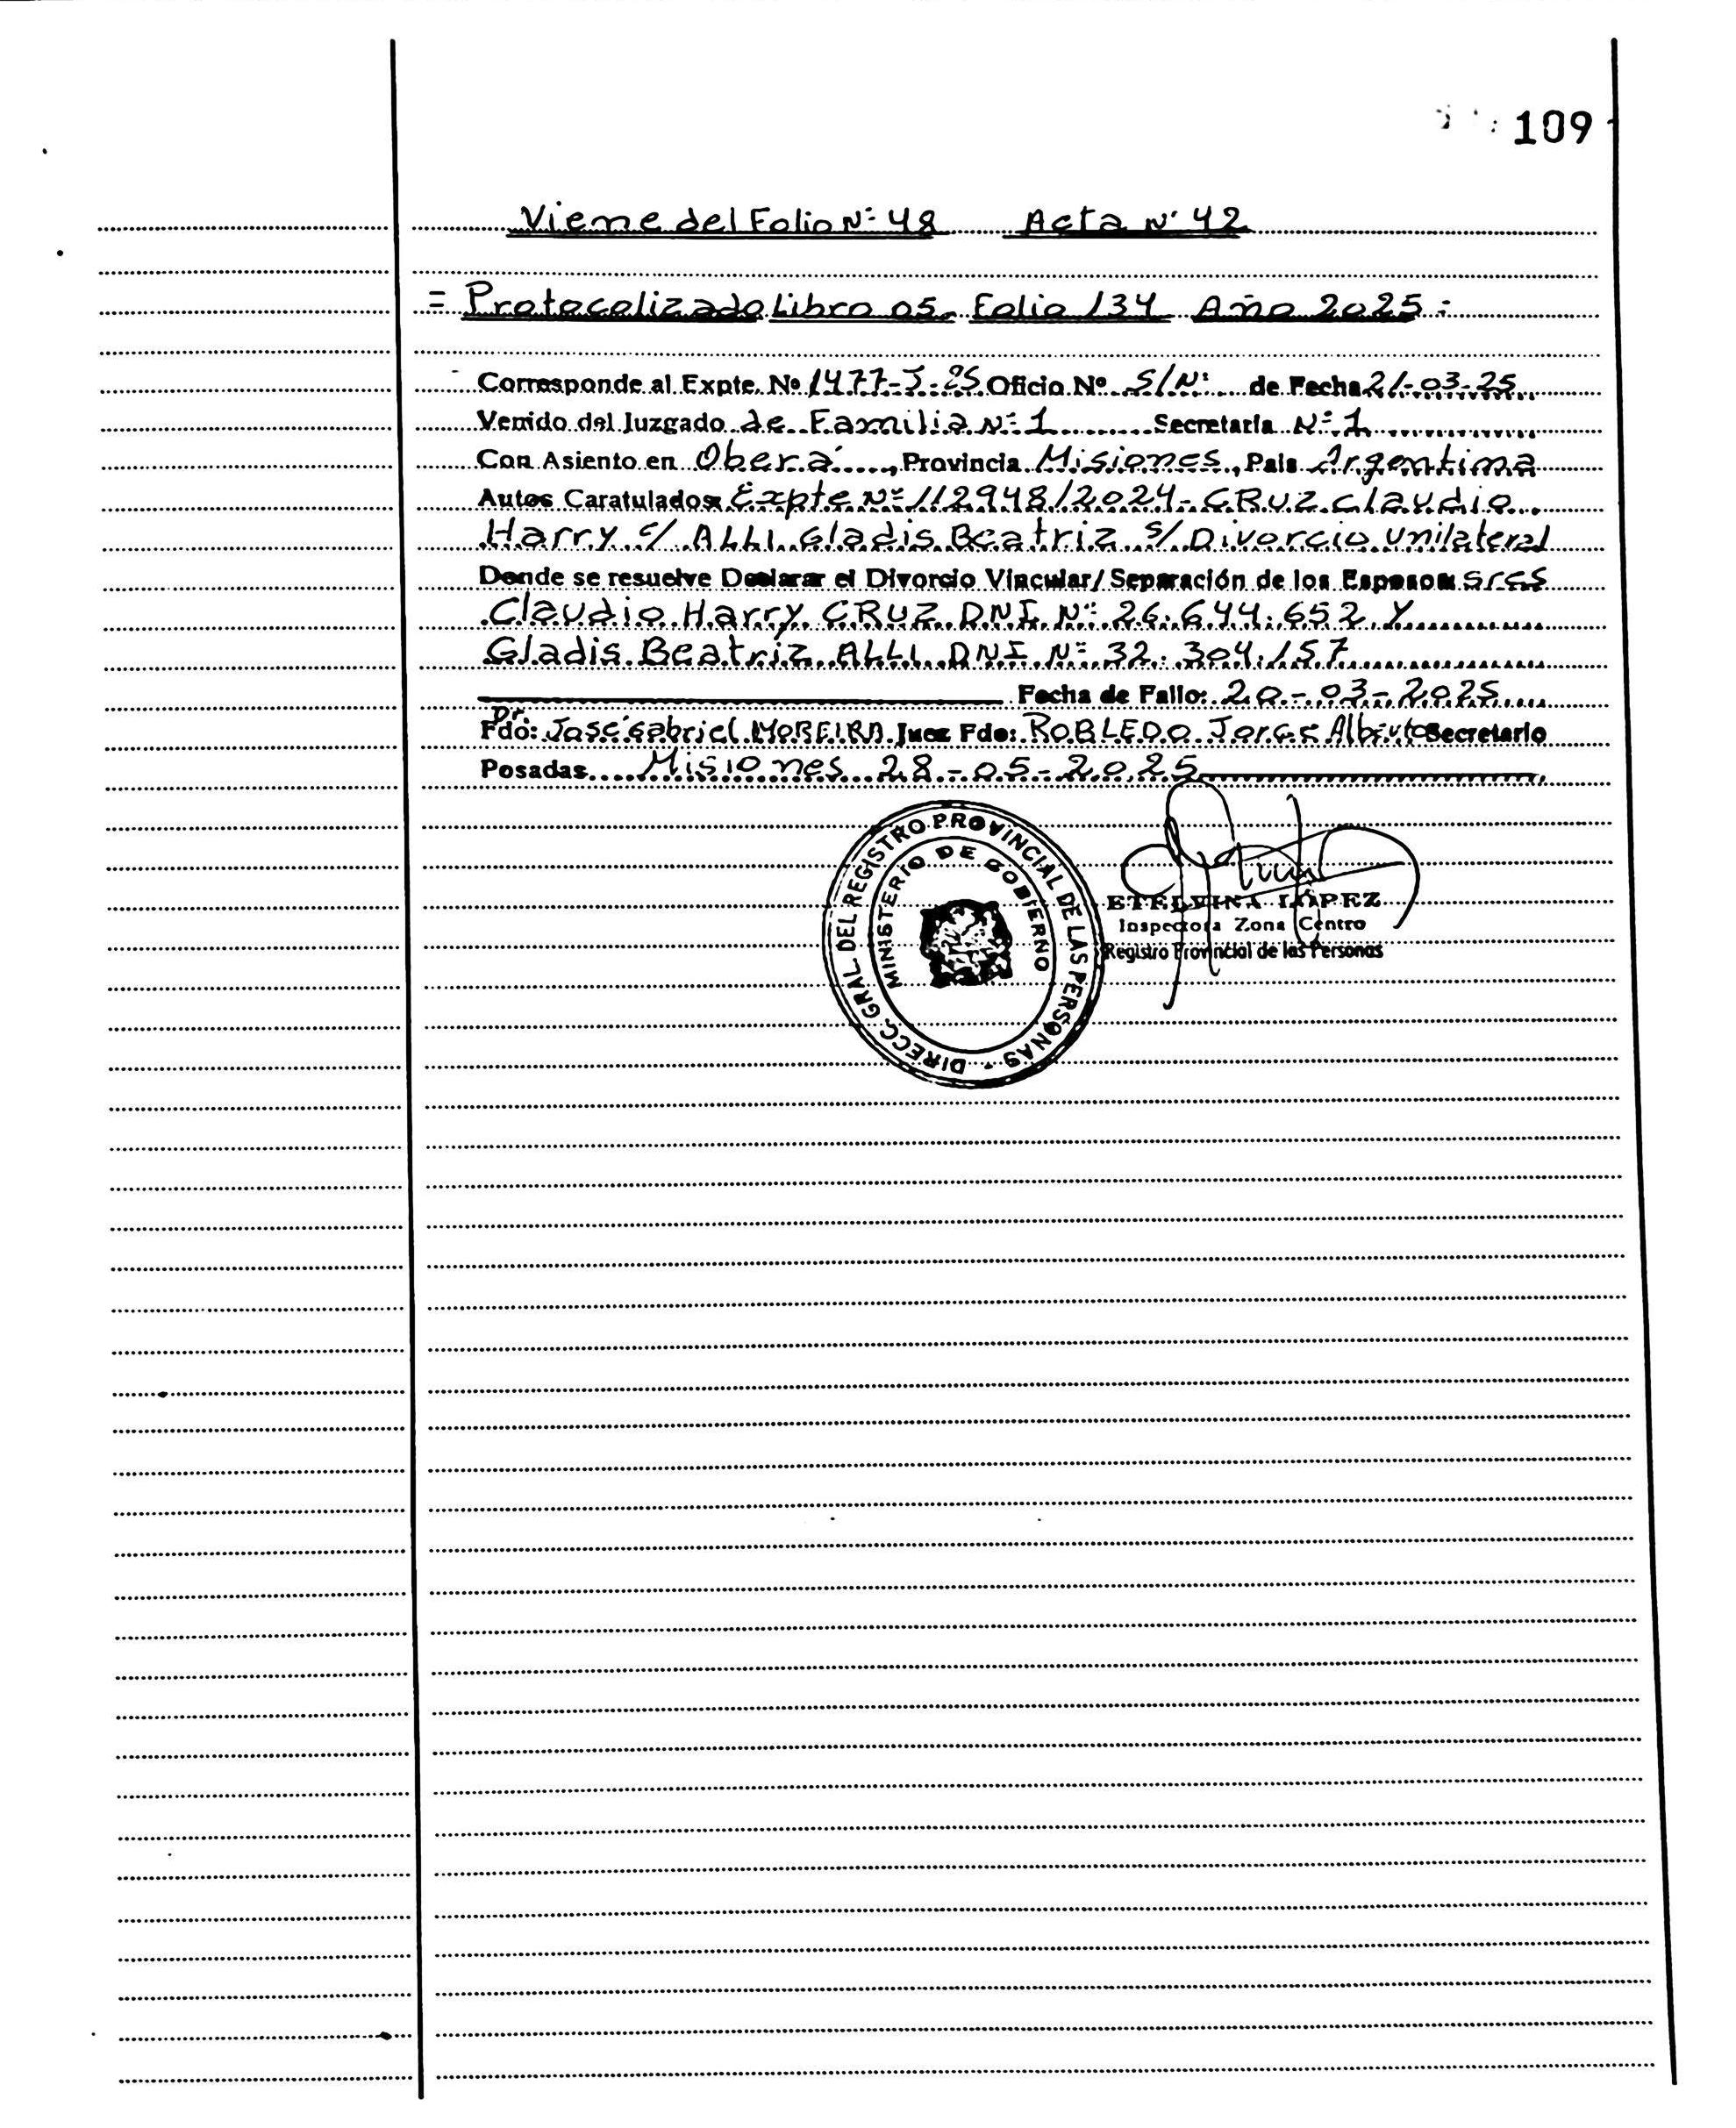 109
Viene del Folio Nº 48 Acta Nº 42
= Protocolizado Libro 05 - Folio 134 Año 2025 =
Corresponde al Expte. Nº 1477-J-25 Oficio Nº S/Nº de Fecha 21-03-25
Venido del Juzgado de Familia Nº 1 Secretaría Nº 1
Con Asiento en Oberá, Provincia Misiones, País Argentina
Autos Caratulados: Expte Nº 112948/2024 - CRUZ Claudio
Harry c/ ALLI Gladis Beatriz s/ Divorcio unilateral
Donde se resuelve Declarar el Divorcio Vincular/Separación de los Esposos: sres
Claudio Harry CRUZ DNI Nº 26.644.652 y
Gladis Beatriz ALLI DNI Nº 32.304.157
Fecha de Fallo: 20-03-2025
Fdo: Dr. José Gabriel MOREIRA Juez Fdo: ROBLEDO Jorge Alberto Secretario
Posadas Misiones 28-05-2025
DIRECC. GRAL. DEL REGISTRO PROVINCIAL DE LAS PERSONAS
MINISTERIO DE GOBIERNO
ETELVINA LOPEZ
Inspectora Zona Centro
Registro Provincial de las Personas